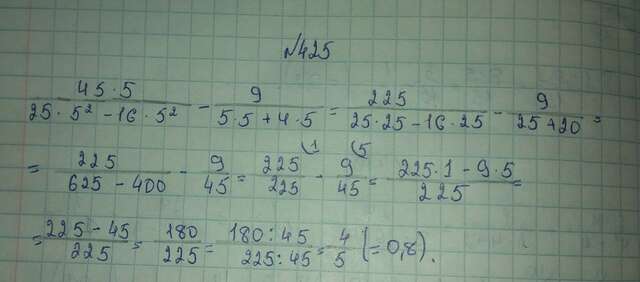 №425
45·5/(25·5²-16·5²) - 9/(5·5+4·5) = 225/(25·25-16·25) - 9/(25+20) =
= 225/(625-400) - 9/45 = 225/225 (1 - 9/45 (5 = (225·1-9·5)/225 =
= (225-45)/225 = 180/225 = 180:45/225:45 = 4/5 (=0,8).